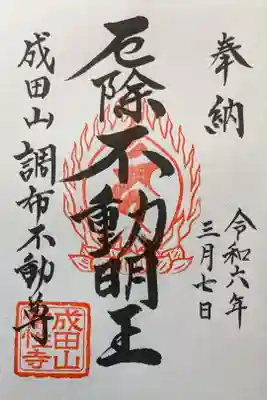 奉納
令和六年
三月七日
厄除不動明王
成田山調布不動尊
成田山
性寺